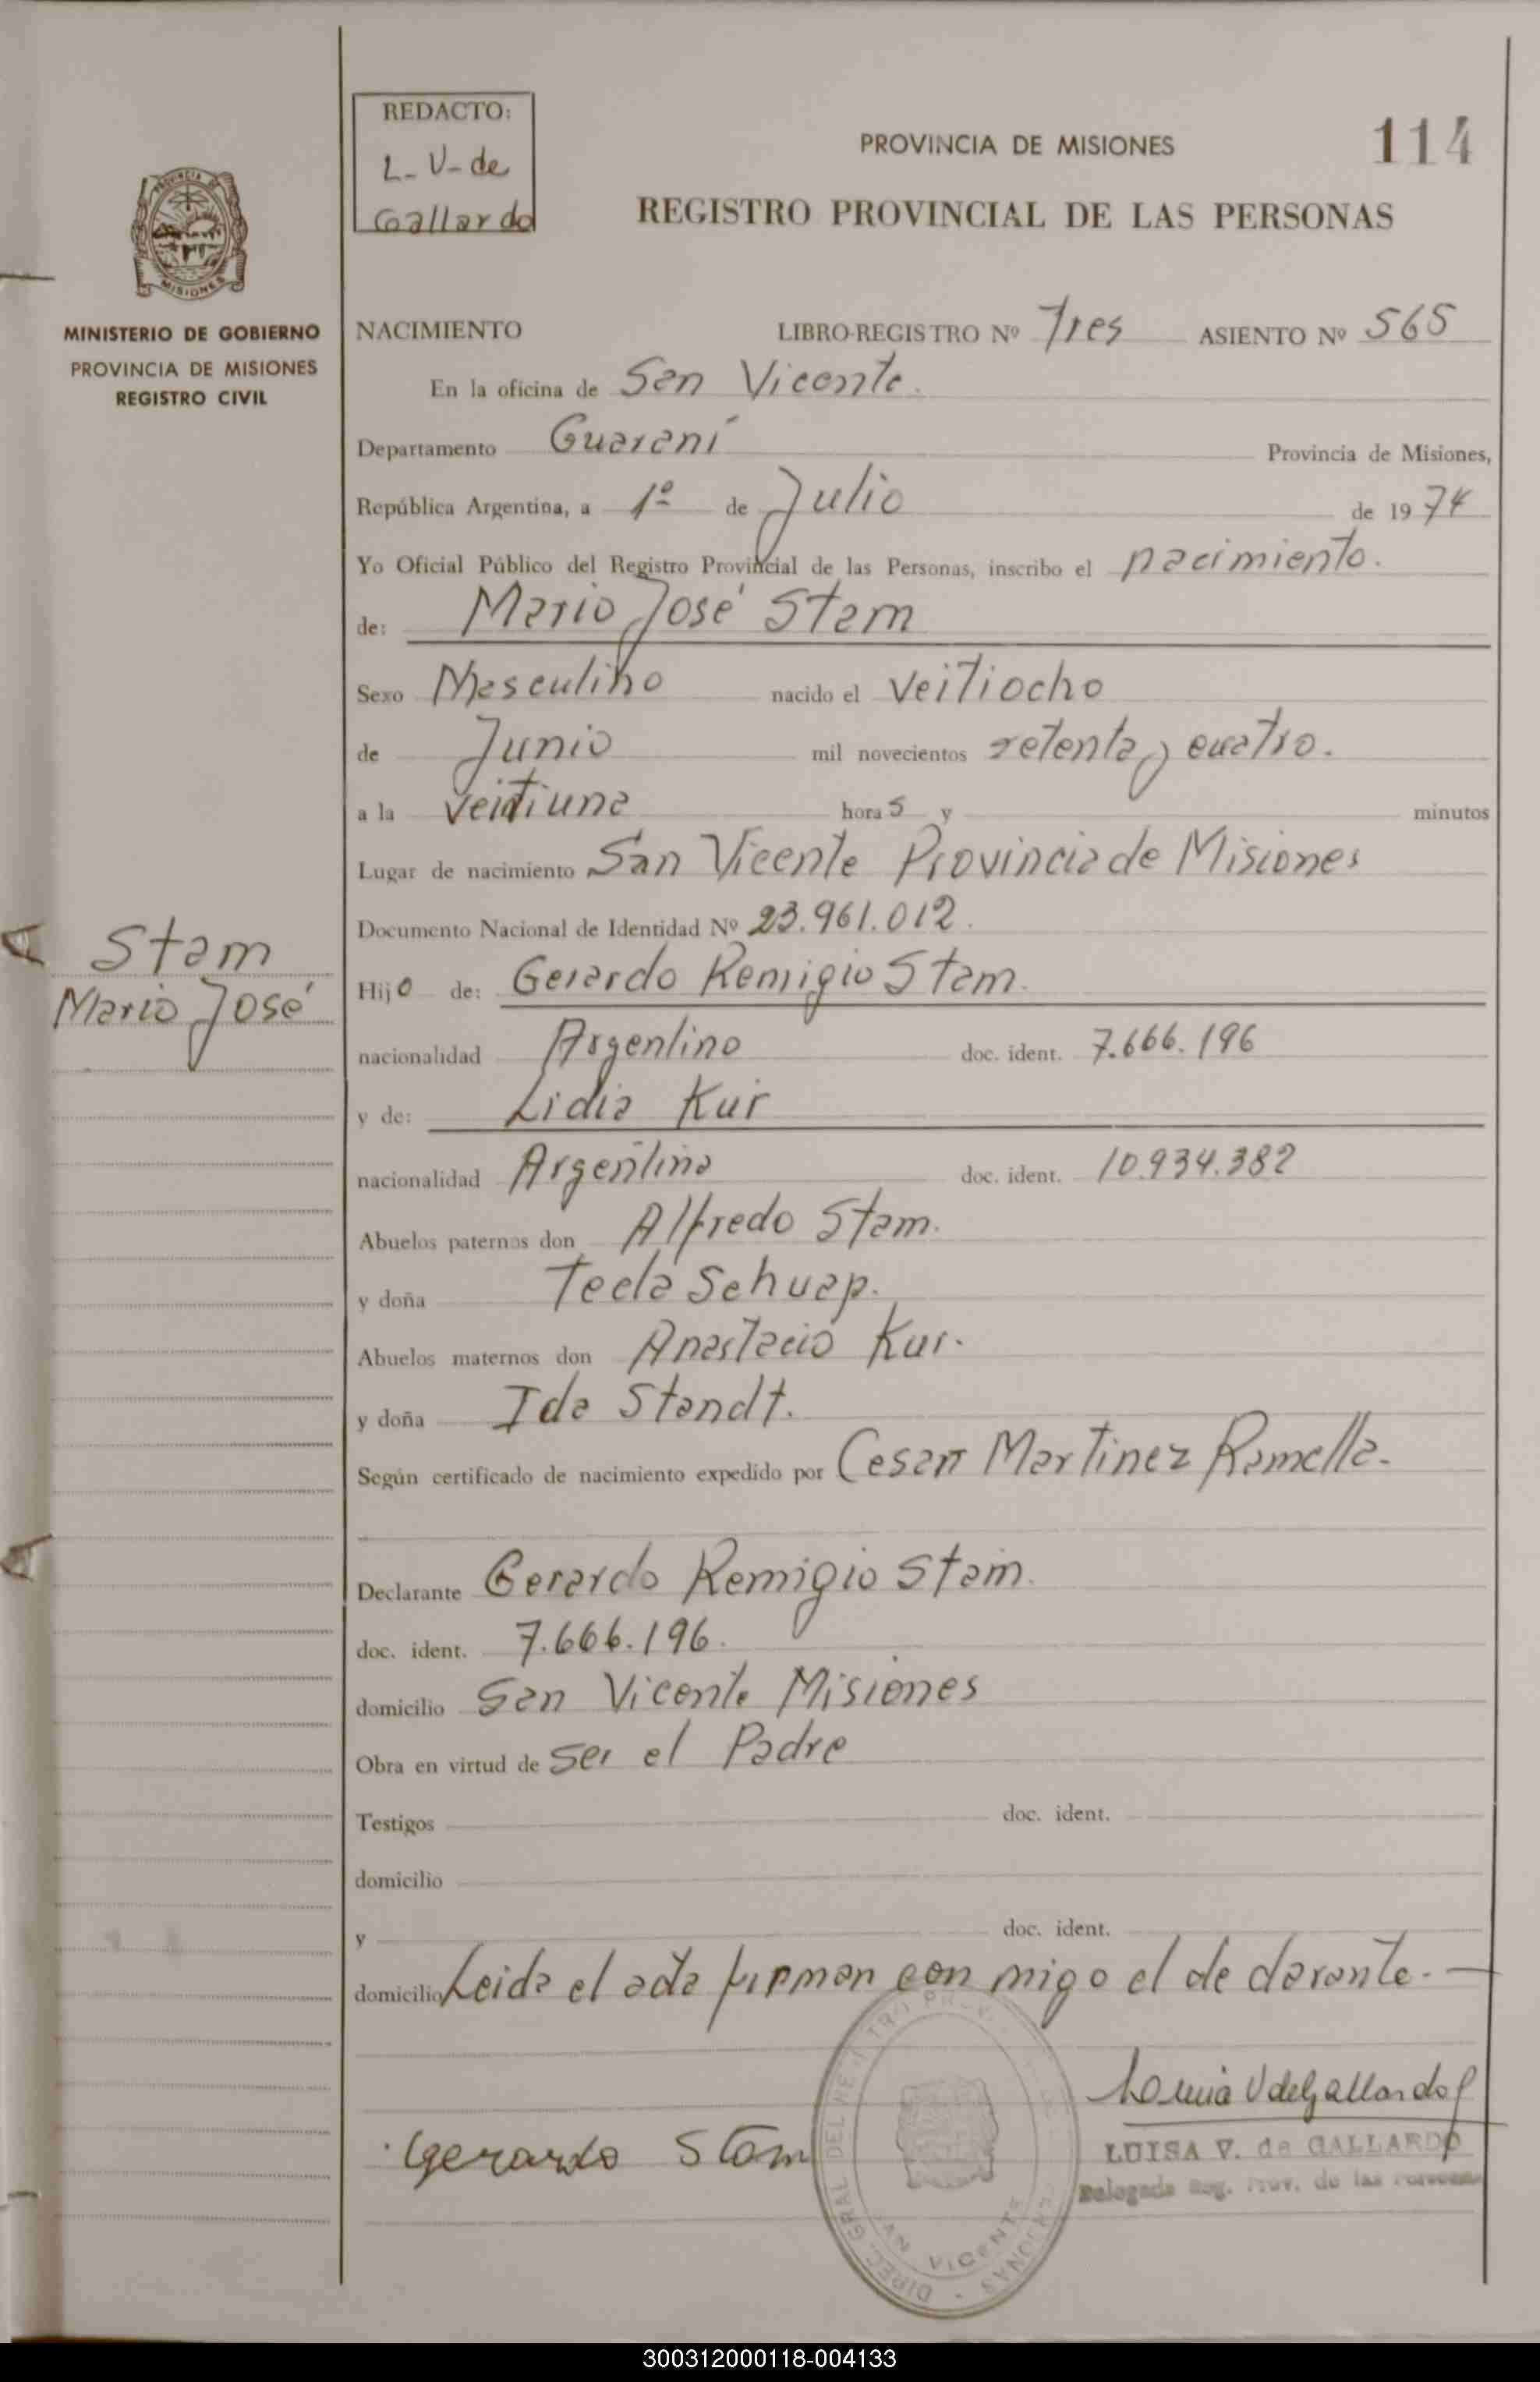 REDACTO:
L-V-de
Gallardo
PROVINCIA DE MISIONES
114
REGISTRO PROVINCIAL DE LAS PERSONAS
MISIONES
MINISTERIO DE GOBIERNO
PROVINCIA DE MISIONES
REGISTRO CIVIL
NACIMIENTO LIBRO-REGISTRO Nº Tres ASIENTO Nº 565
En la oficina de San Vicente.
Departamento Guaraní Provincia de Misiones,
República Argentina, a 1º de Julio de 1974
Yo Oficial Público del Registro Provincial de las Personas, inscribo el nacimiento.
de: Mario José Stam
Sexo Masculino nacido el veitiocho
de Junio mil novecientos setenta y cuatro.
a la veitiuna horas y minutos
Lugar de nacimiento San Vicente Provincia de Misiones
Documento Nacional de Identidad Nº 23.961.012.
Stam
Mario José
Hijo de: Gerardo Remigio Stam.
nacionalidad Argentino doc. ident. 7.666.196
y de: Lidia Kur
nacionalidad Argentina doc. ident. 10.934.382
Abuelos paternos don Alfredo Stam.
y doña Tecla Schuap.
Abuelos maternos don Anastacio Kur.
y doña Ida Standt.
Según certificado de nacimiento expedido por Cesar Martinez Ramella.
Declarante Gerardo Remigio Stam.
doc. ident. 7.666.196.
domicilio San Vicente Misiones
Obra en virtud de ser el Padre
Testigos doc. ident.
domicilio
y doc. ident.
domicilio Leida el acta firman con migo el declarante.
Gerardo Stam
LUISA V. de GALLARDO
Delegada Reg. Prov. de las Personas
DIREC. GRAL DEL REGISTRO PROV. DE LAS PERSONAS
SAN VICENTE
300312000118-004133